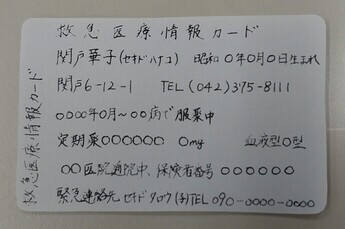 救急医療情報カード
関戸華子(セキドハナコ) 昭和0年0月0日生まれ
関戸6-12-1 TEL(042)375-8111
○○○○年0月～○○病で服薬中
定期薬○○○○○○ ○mg 血液型○型
○○医院通院中、保険者番号 ○○○○○○
緊急連絡先 セキドタロウ(子)TEL 090-0000-0000
救急医療情報カード